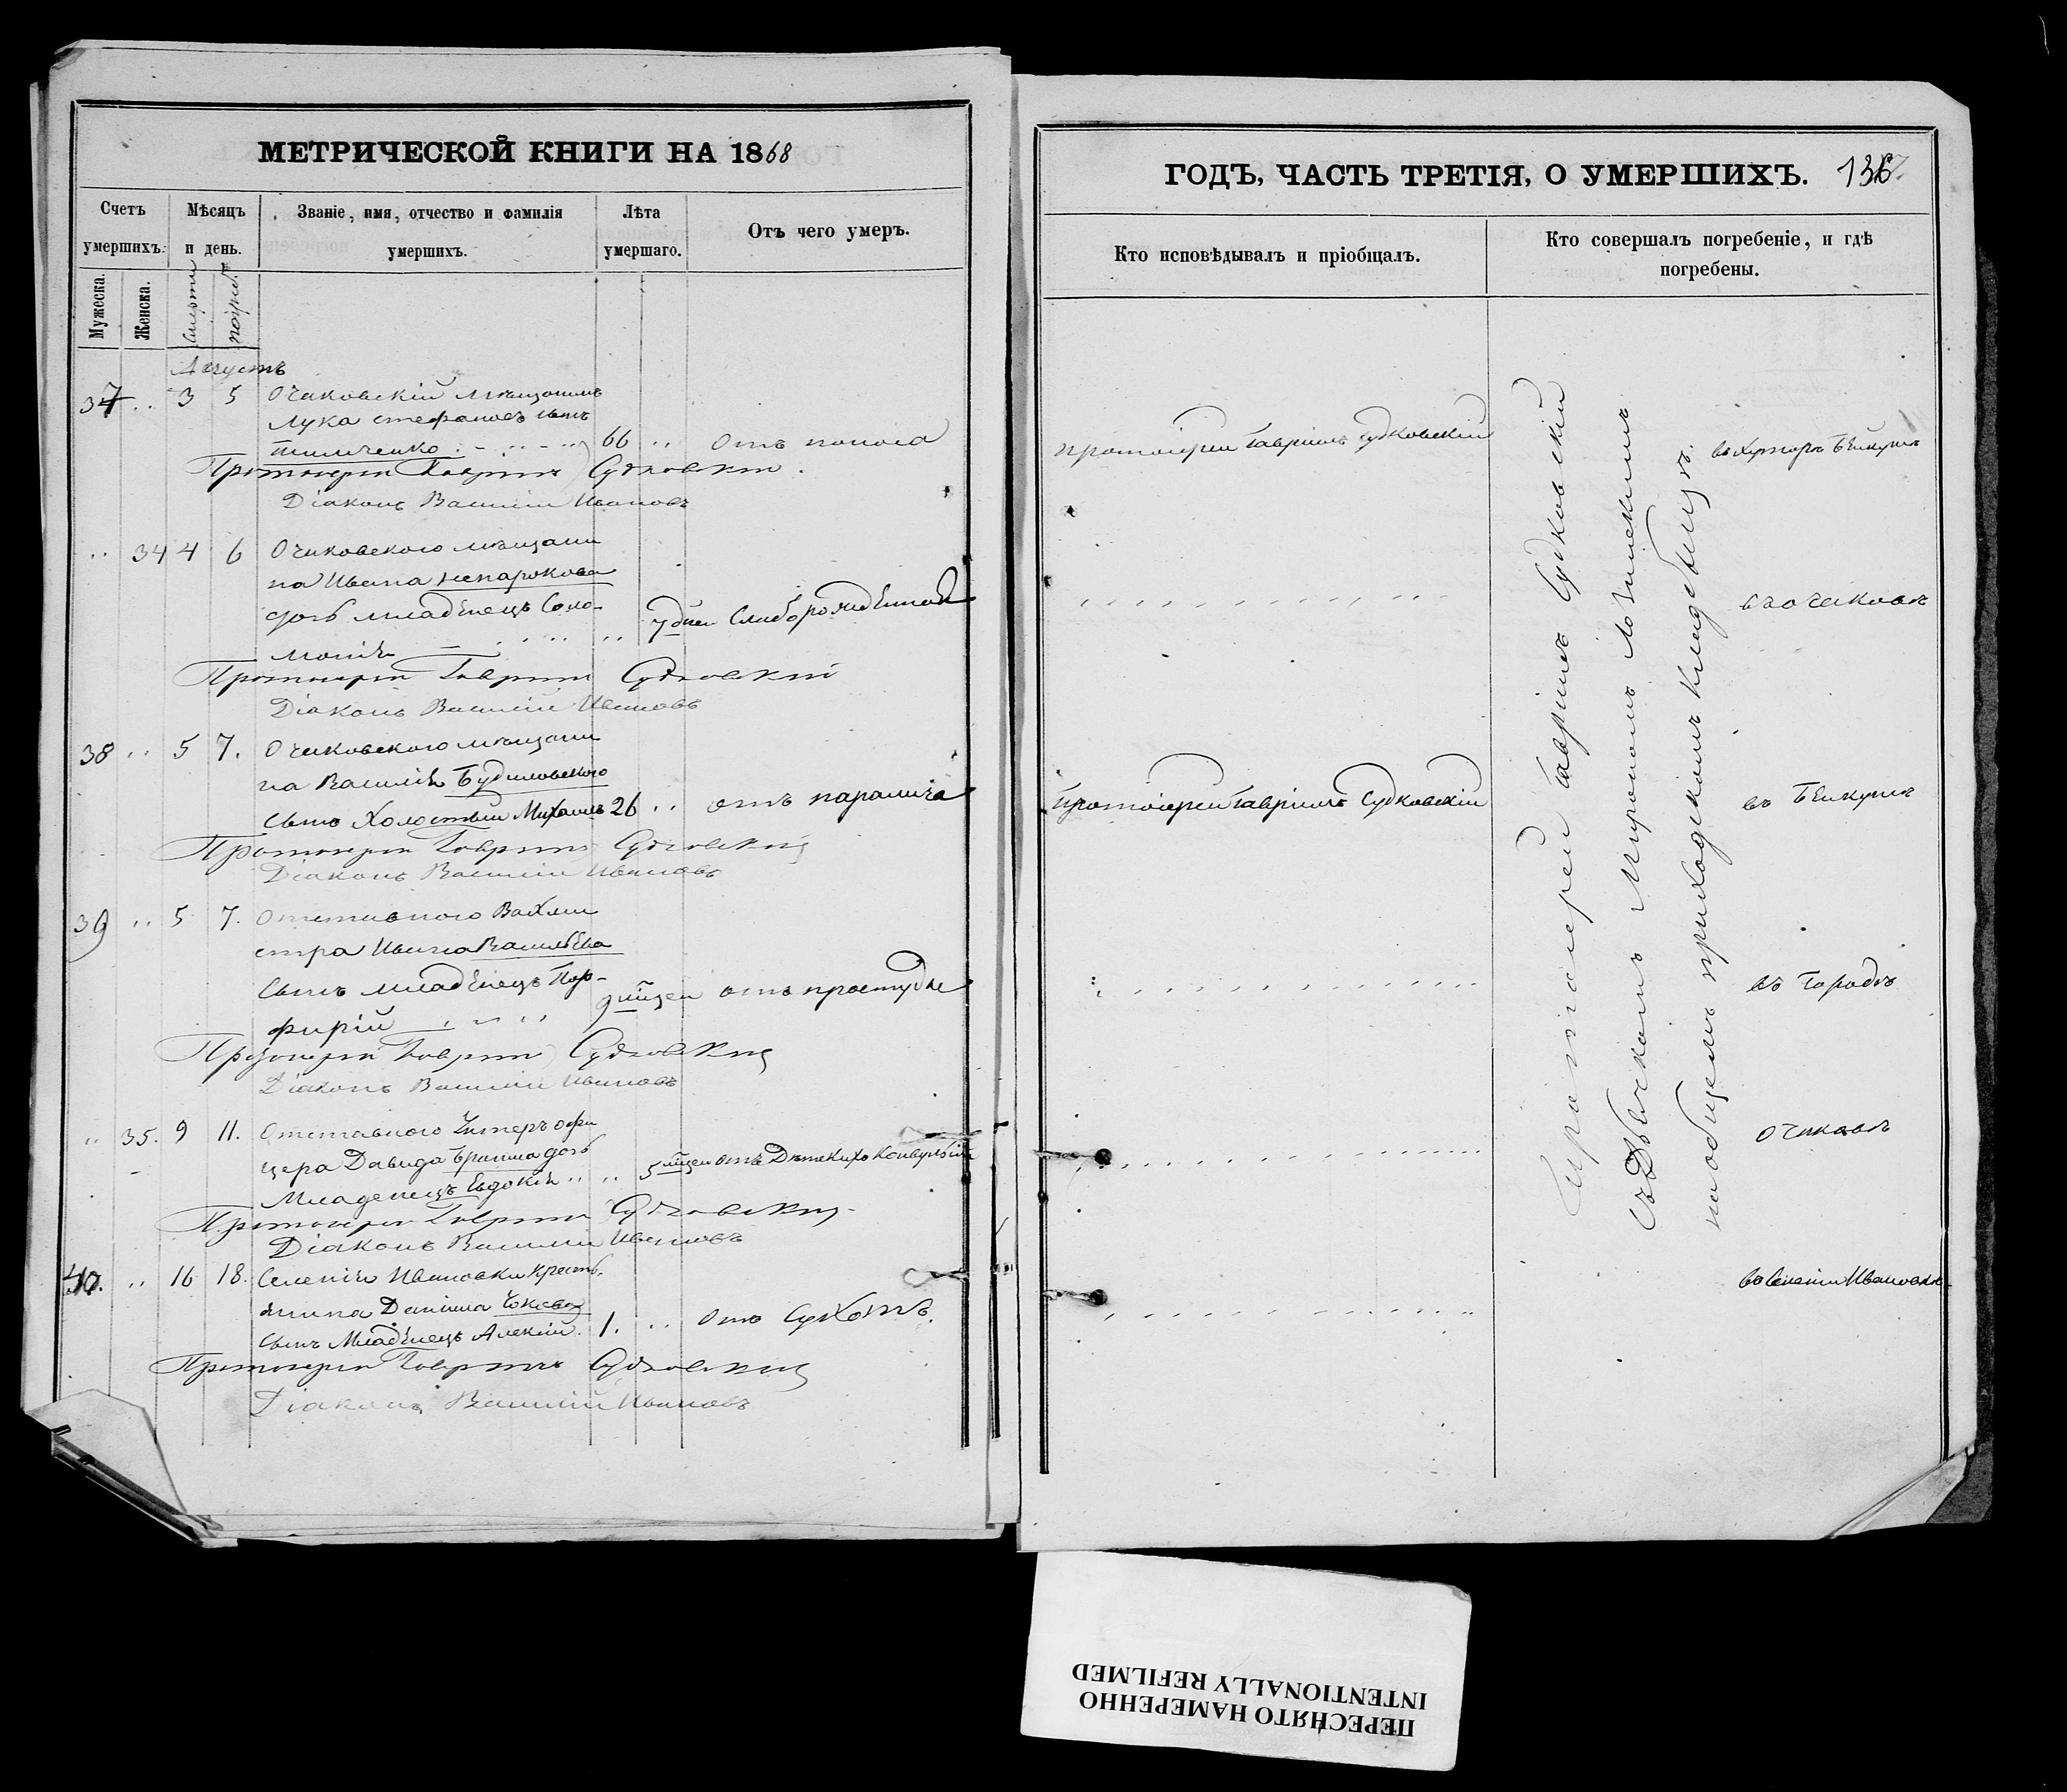 МЕТРИЧЕСКОЙ КНИГИ НА 1868
Счетъ умершихъ.
Мѣсяцъ и день.
Званіе, имя, отчество и фамилія умершихъ.
Лѣта умершаго.
Отъ чего умеръ.
Мужеска.
Женска.
Смерти
погреб.
Августъ
37 .. 3 5 Очаковскій мѣщанинъ
Лука Стефановъ сынъ
66 .. отъ поноса
Протоіерей Гавріилъ Судковскій
Діаконъ Василій Ивановъ
.. 34 4 6 Очаковского мѣщани
на Ивана Непарокова
дочь младенецъ Соло-
7 дней Слаборожденная
монія
Протоіерей Гавріилъ Судковскій
Діаконъ Василій Ивановъ
38 .. 5 7. Очаковского мѣщани
на Василія Будиловского
сынъ Холостый Михаилъ 26 .. отъ паралича
Протоіерей Гавріилъ Судковскій
Діаконъ Василій Ивановъ
39 .. 5 7. Отставного Вахми
стра Ивана Васильева
сынъ младенецъ Пор-
9 мцей отъ простуды
фирій
Протоіерей Гавріилъ Судковскій
Діаконъ Василій Ивановъ
.. 35. 9 11. Отставного Унтеръ офи
цера Давида дочь
5 мцей отъ Дѣтскихъ конвульсій
Младенецъ Евдокія
Протоіерей Гавріилъ Судковскій
Діаконъ Василій Ивановъ
40. .. 16 18. Селенія Ивановки крест.
янина Даніила
сынъ Младенецъ Алексій. 1. .. отъ Сухотъ.
Протоіерей Гавріилъ Судковскій
Діаконъ Василій Ивановъ
ГОДЪ, ЧАСТЬ ТРЕТІЯ, О УМЕРШИХЪ. 136
Кто исповѣдывалъ и пріобщалъ.
Кто совершалъ погребеніе, и гдѣ погребены.
протоіерей Гавріилъ Судковскій
въ хуторѣ Бейкушѣ
въ Очаковѣ
протоіерей Гавріилъ Судковскій
въ Бейкушѣ
въ городѣ
Очаковѣ
въ селеніи Ивановкѣ
Протоіерей Гавріилъ Судковскій
съ Дьячкомъ Мирономъ Лозинскимъ
на общемъ приходскомъ кладбищѣ.
ПЕРЕСНЯТО НАМЕРЕННО
INTENTIONALLY REFILMED